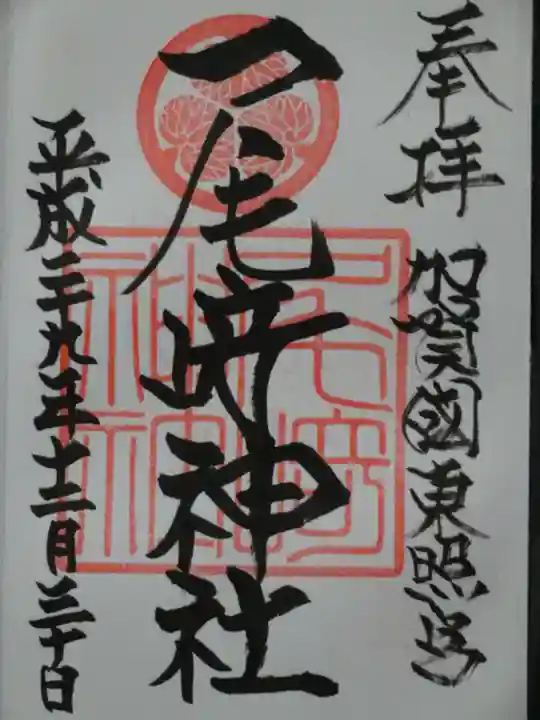 奉拝
加賀國東照宮
尾﨑神社
平成二十九年十二月三十日
尾崎神社